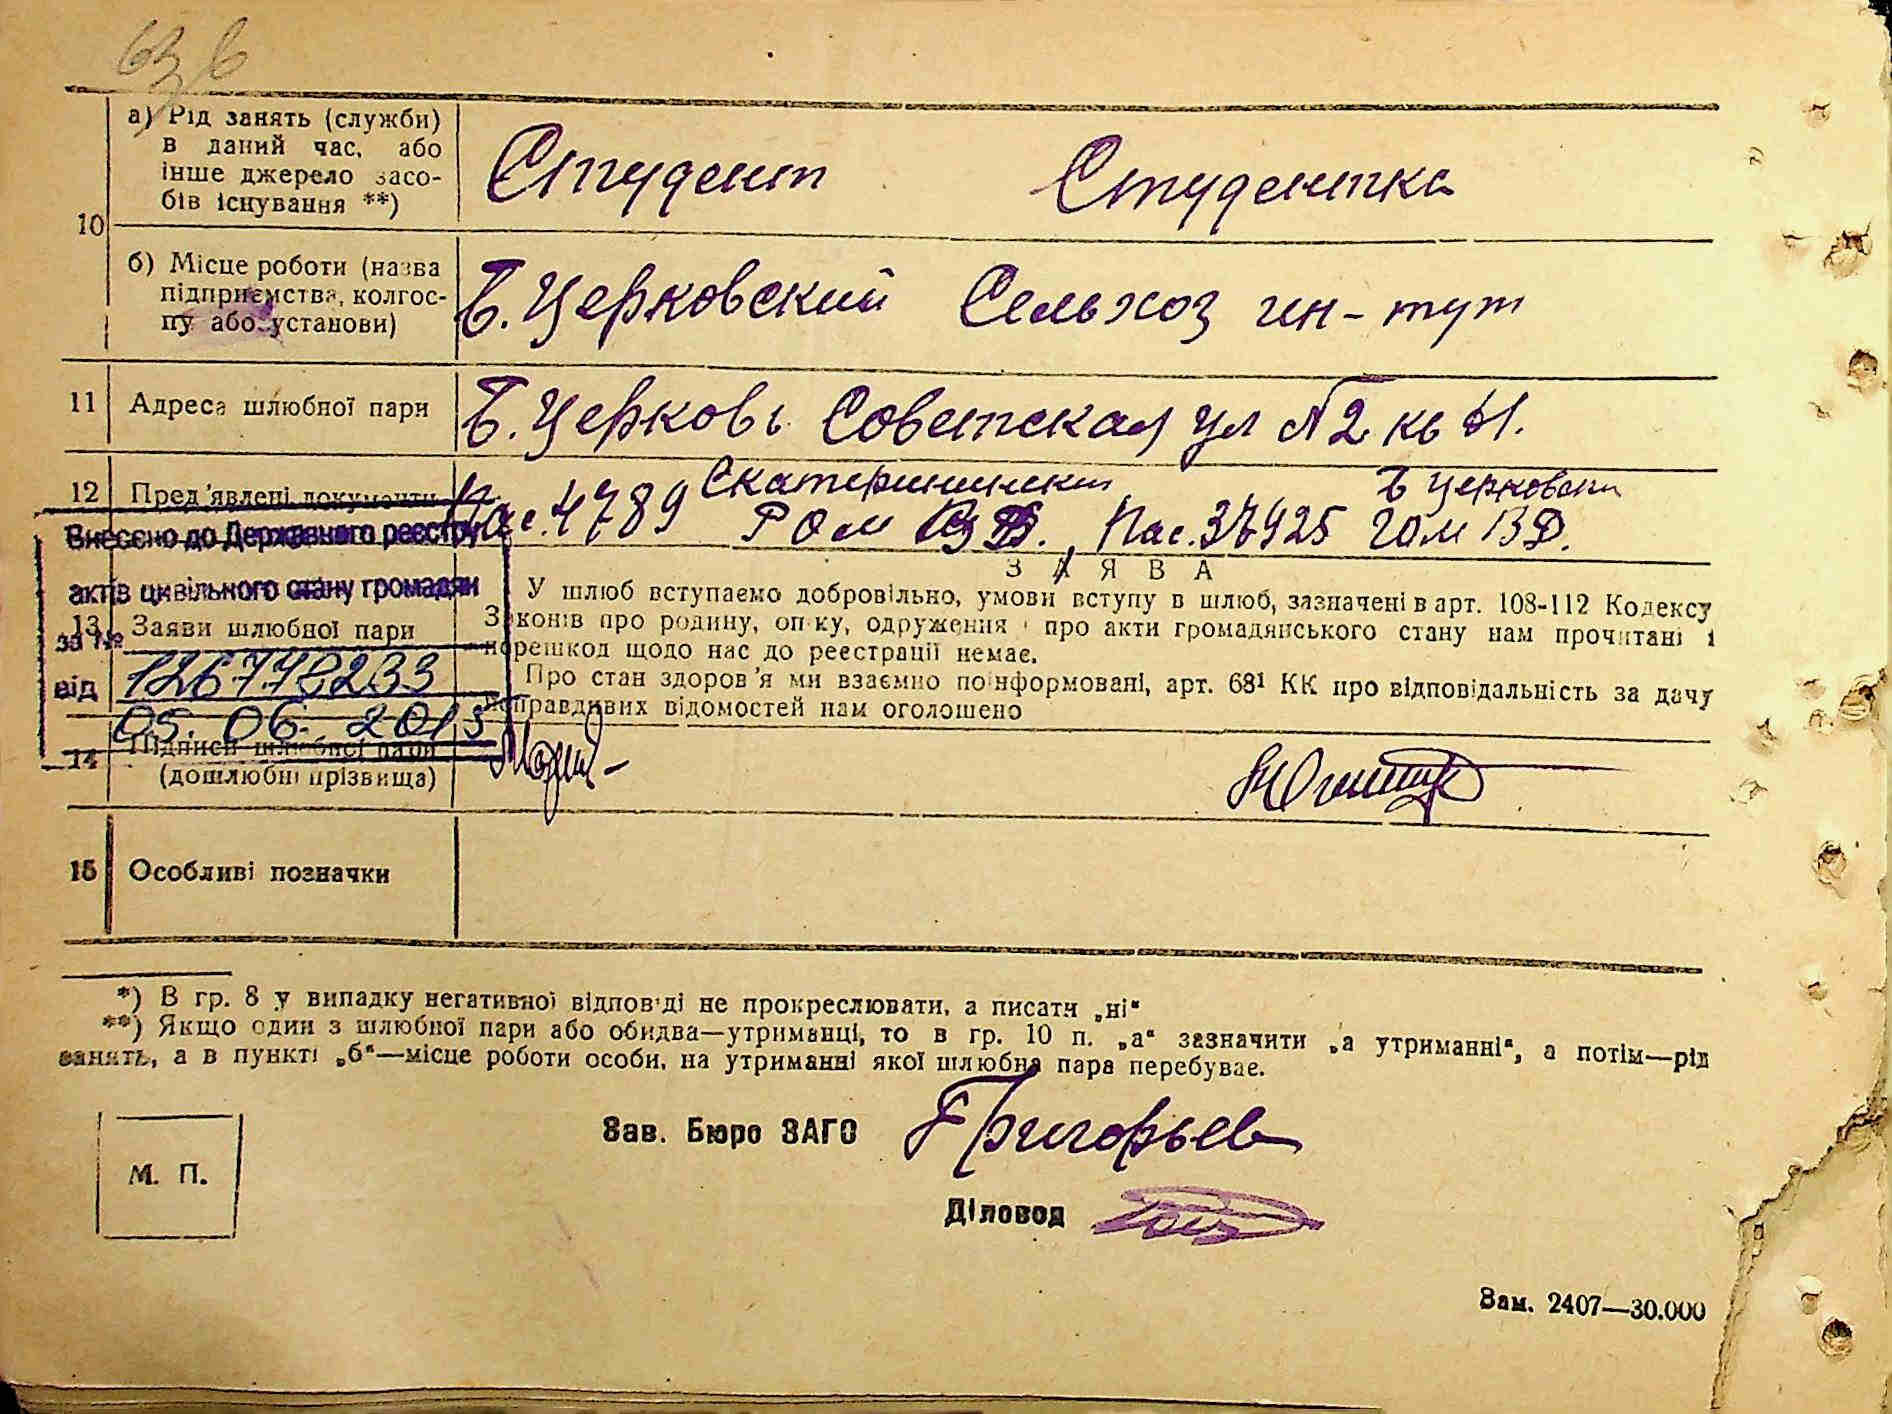 а) Рід занять (служби)
в даний час, або
інше джерело засо-
бів існування **)
Студент Студентка
10
б) Місце роботи (назва
підприємства, колгос-
пу або установи)
Б. Церковский Сельхоз ин-тут
11 Адреса шлюбної пари
Б. Церковь Советская ул №2 кв
12 Пред'явлені документи
Екатерининским Б Церковским
Пас. 4789 РОМ Пас. 37925 ГОМ
Внесено до Державного реєстру
актів цивільного стану громадян
за №
126778233
від
05. 06. 2013
З А Я В А
13 Заяви шлюбної пари
У шлюб вступаємо добровільно, умови вступу в шлюб, зазначені в арт. 108-112 Кодексу
Законів про родину, опіку, одруження і про акти громадянського стану нам прочитані і
перешкод щодо нас до реєстрації немає.
Про стан здоров'я ми взаємно поінформовані, арт. 68¹ КК про відповідальність за дачу
неправдивих відомостей нам оголошено
14 Підписи шлюбної пари
(дошлюбні прізвища)
15 Особливі позначки
*) В гр. 8 у випадку негативної відповіді не прокреслювати, а писати „ні“
**) Якщо один з шлюбної пари або обидва—утриманці, то в гр. 10 п. „а“ зазначити „а утриманні“, а потім—рід
занять, а в пункті „б“—місце роботи особи, на утриманні якої шлюбна пара перебуває.
Зав. Бюро ЗАГС Григорьев
М. П.
Діловод
Зам. 2407—30.000